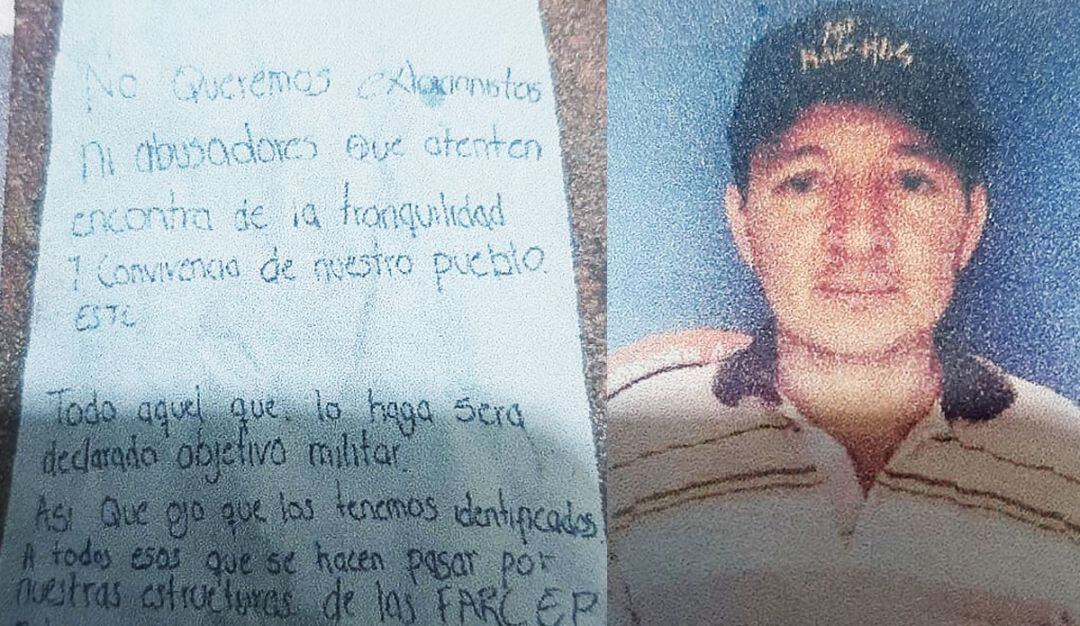 No Queremos extorsionistas
Ni abusadores que atenten
encontra de la tranquilidad
y Convivencia de nuestro pueblo.
ESTE
Todo aquel que. lo haga sera
declarado objetivo militar.
Asi Que ojo que los tenemos identificados
A todos esos que se hacen pasar por
nuestras estructuras de las FARC EP